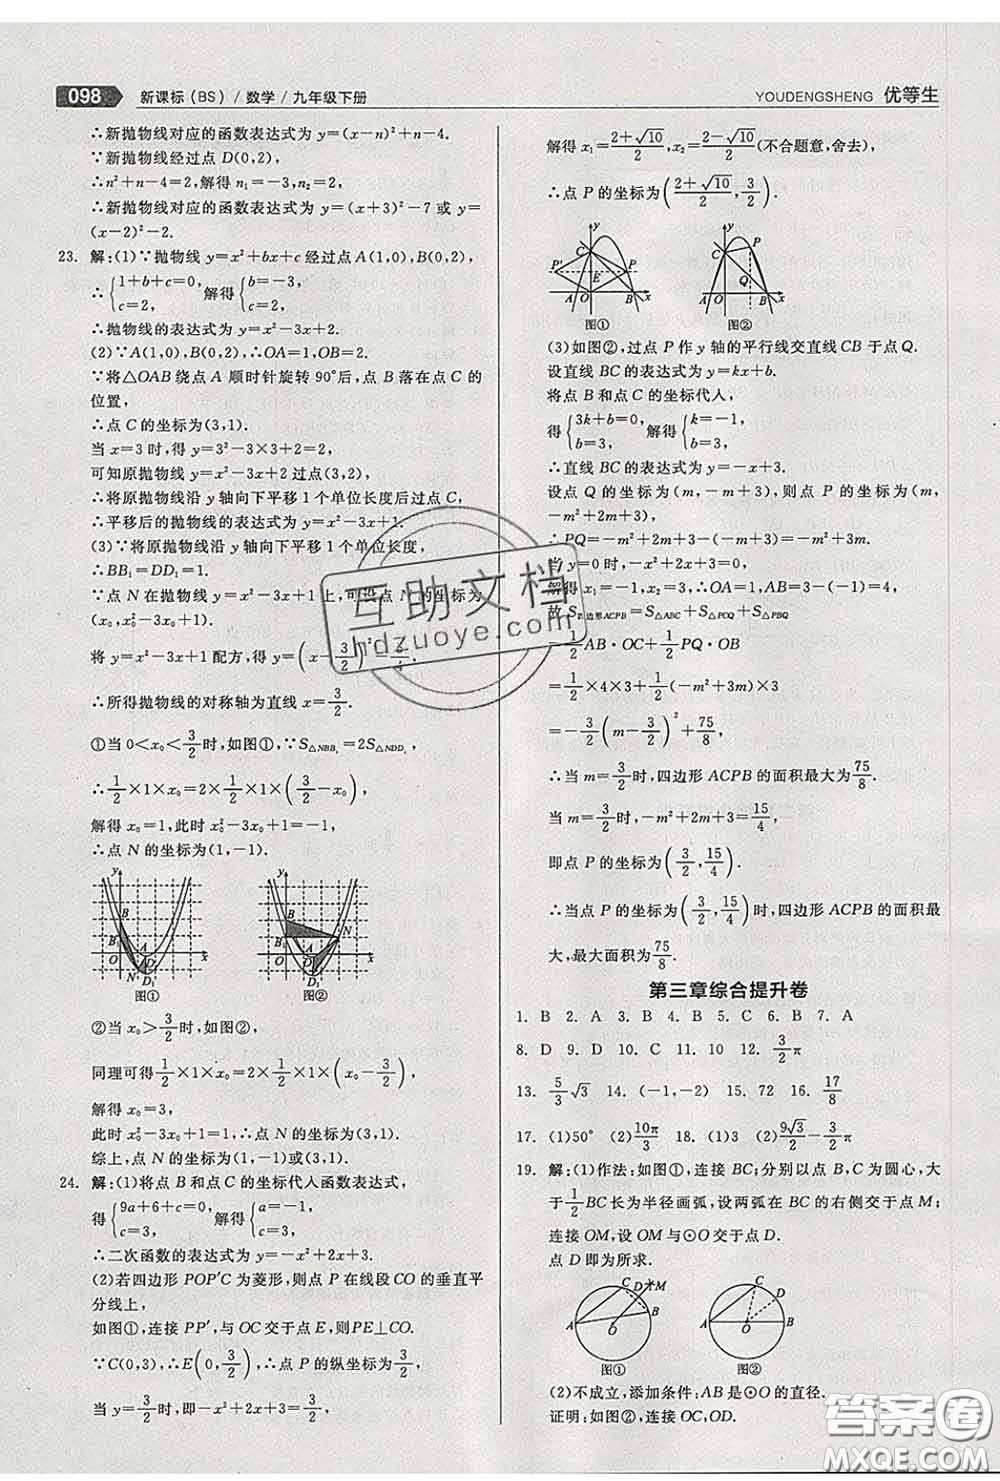 098 新课标(BS)/数学/九年级下册
YOUDENGSHENG 优等生
∴新抛物线对应的函数表达式为 y=(x-n)²+n-4.
∵新抛物线经过点 D(0,2),
∴n²+n-4=2,解得 n₁=-3,n₂=2,
∴新抛物线对应的函数表达式为 y=(x+3)²-7 或 y=
(x-2)²-2.
23. 解:(1)∵抛物线 y=x²+bx+c 经过点 A(1,0),B(0,2),
∴{1+b+c=0, c=2, 解得{b=-3, c=2,
∴抛物线的表达式为 y=x²-3x+2.
(2)∵A(1,0),B(0,2),∴OA=1,OB=2.
∵将△OAB 绕点 A 顺时针旋转 90°后,点 B 落在点 C 的
位置,
∴点 C 的坐标为(3,1).
当 x=3 时,得 y=3²-3×3+2=2,
可知原抛物线 y=x²-3x+2 过点(3,2),
∴将原抛物线沿 y 轴向下平移 1 个单位长度后过点 C,
∴平移后的抛物线的表达式为 y=x²-3x+1.
(3)∵将原抛物线沿 y 轴向下平移 1 个单位长度,
∴BB₁=DD₁=1.
∵点 N 在抛物线 y=x²-3x+1 上,可设点 N 的坐标为
(x₀,x₀²-3x₀+1).
将 y=x²-3x+1 配方,得 y=(x-3/2)²-5/4.
∴所得抛物线的对称轴为直线 x=3/2.
①当 0<x₀<3/2 时,如图①,∵S△NBB₁=2S△NDD₁,
∴1/2×1×x₀=2×1/2×1×(3/2-x₀),
解得 x₀=1,此时 x₀²-3x₀+1=-1,
∴点 N 的坐标为(1,-1).
y B B₁ O A D N D₁ x
图①
y B B₁ N O A D D₁ x
图②
②当 x₀>3/2 时,如图②,
同理可得 1/2×1×x₀=2×1/2×1×(x₀-3/2),
解得 x₀=3,
此时 x₀²-3x₀+1=1,∴点 N 的坐标为(3,1).
综上,点 N 的坐标为(1,-1)或(3,1).
24. 解:(1)将点 B 和点 C 的坐标代入函数表达式,
得{9a+6+c=0, c=3, 解得{a=-1, c=3,
∴二次函数的表达式为 y=-x²+2x+3.
(2)若四边形 POP′C 为菱形,则点 P 在线段 CO 的垂直平
分线上,
如图①,连接 PP′,与 OC 交于点 E,则PE⊥CO.
∵C(0,3),∴E(0,3/2),∴点 P 的纵坐标为 3/2,
当 y=3/2 时,即-x²+2x+3=3/2,
解得 x₁=(2+√10)/2,x₂=(2-√10)/2(不合题意,舍去),
∴点 P 的坐标为((2+√10)/2,3/2).
y C P′ E P A O B x
图①
y C P Q A O B x
图②
(3)如图②,过点 P 作 y 轴的平行线交直线 CB 于点 Q.
设直线 BC 的表达式为 y=kx+b.
将点 B 和点 C 的坐标代人,
得{3k+b=0, b=3, 解得{k=-1, b=3,
∴直线 BC 的表达式为 y=-x+3.
设点 Q 的坐标为(m,-m+3),则点 P 的坐标为(m,
-m²+2m+3),
∴PQ=-m²+2m+3-(-m+3)=-m²+3m.
当 y=0 时,-x²+2x+3=0,
解得 x₁=-1,x₂=3,∴OA=1,AB=3-(-1)=4,
故 S四边形ACPB=S△ABC+S△PCQ+S△PBQ
=1/2AB·OC+1/2PQ·OB
=1/2×4×3+1/2(-m²+3m)×3
=-3/2(m-3/2)²+75/8,
∴当 m=3/2 时,四边形 ACPB 的面积最大为 75/8.
当 m=3/2 时,-m²+2m+3=15/4,
即点 P 的坐标为(3/2,15/4).
∴当点 P 的坐标为(3/2,15/4)时,四边形 ACPB 的面积最
大,最大面积为 75/8.
第三章综合提升卷
1. B 2. A 3. B 4. B 5. C 6. B 7. A
8. D 9. D 10. C 11. 10 12. 3/2π
13. 5/3√3 14. (-1,-2) 15. 72 16. 17/8
17. (1)50° (2)10π/3 18. (1)3 (2)9√3/2-3/2π
19. 解:(1)作法:如图①,连接 BC;分别以 B,C 为圆心,大
于 1/2BC 长为半径画弧,设两弧在 BC 的右侧交于点 M;
连接 OM,设 OM 与⊙O 交于点 D.
点 D 即为所求.
C D M A B O
图①
C D A O B
图②
(2)不成立,添加条件:AB 是⊙O 的直径.
证明:如图②,连接 OC,OD.
互助文档
hdzuoye.com
答案圈
MXQE.COM